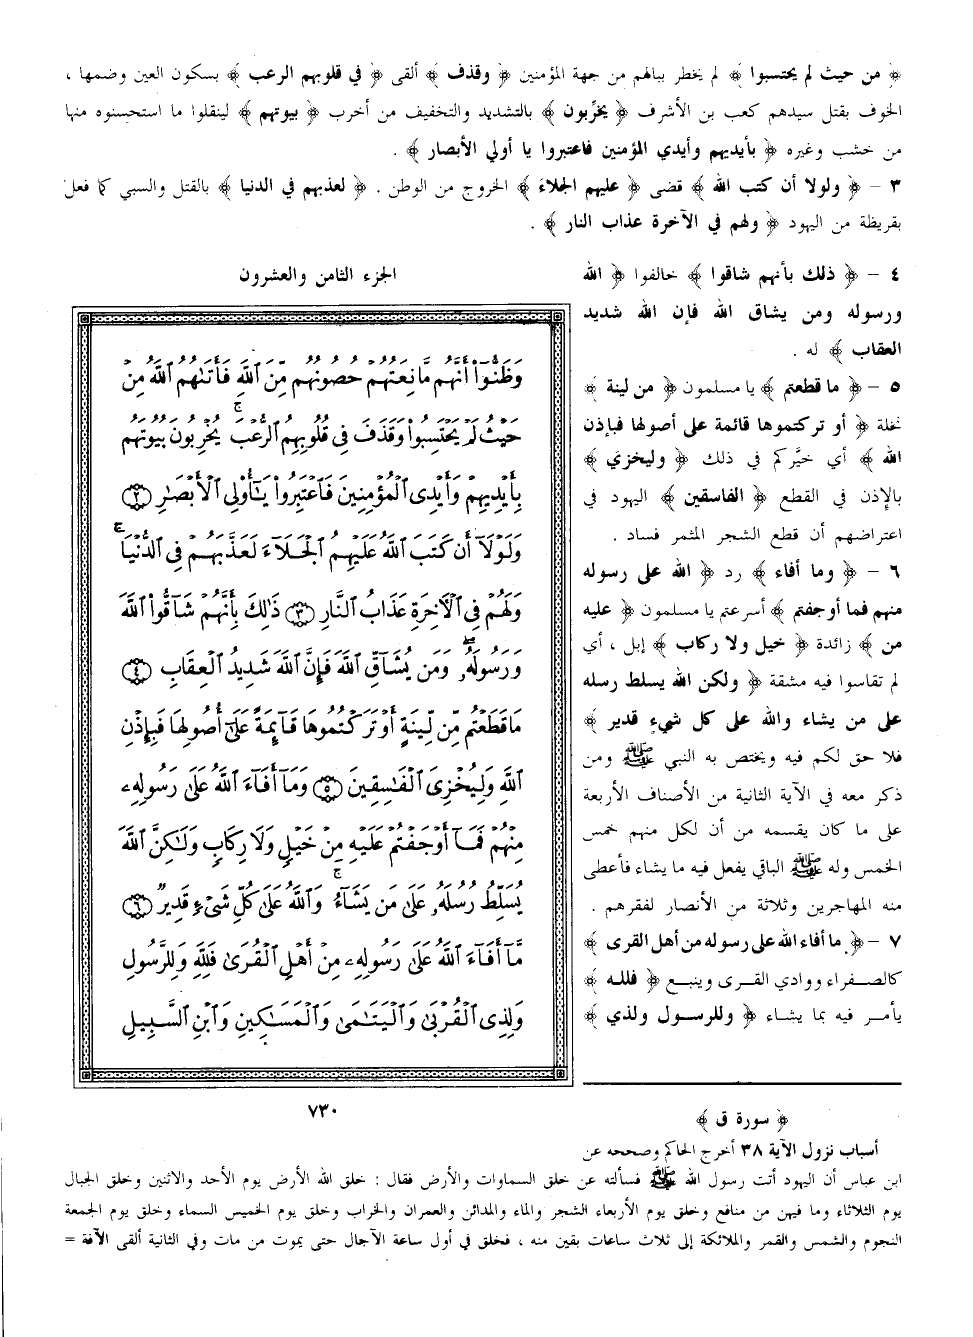 ﴿ من حيث لم يحتسبوا ﴾ لم يخطر ببالهم من جهة المؤمنين ﴿ وقذف ﴾ ألقى ﴿ في قلوبهم الرعب ﴾ بسكون العين وضمها ،
الخوف بقتل سيدهم كعب بن الأشرف ﴿ يخرِّبون ﴾ بالتشديد والتخفيف من أخرب ﴿ بيوتهم ﴾ لينقلوا ما استحسنوه منها
من خشب وغيره ﴿ بأيديهم وأيدي المؤمنين فاعتبروا يا أولي الأبصار ﴾ .
٣ – ﴿ ولولا أن كتب الله ﴾ قضى ﴿ عليهم الجلاءَ ﴾ الخروج من الوطن . ﴿ لعذبهم في الدنيا ﴾ بالقتل والسبي كما فعل
بقريظة من اليهود ﴿ ولهم في الآخرة عذاب النار ﴾ .
٤ – ﴿ ذلك بأنهم شاقوا ﴾ خالفوا ﴿ الله
ورسوله ومن يشاق الله فإن الله شديد
العقاب ﴾ له .
٥ – ﴿ ما قطعتم ﴾ يا مسلمون ﴿ من لينة ﴾
نخلة ﴿ أو تركتموها قائمة على أصولها فبإذن
الله ﴾ أي خيَّركم في ذلك ﴿ وليخزي ﴾
بالإذن في القطع ﴿ الفاسقين ﴾ اليهود في
اعتراضهم أن قطع الشجر المثمر فساد .
٦ – ﴿ وما أفاء ﴾ رد ﴿ الله على رسوله
منهم فما أوجفتم ﴾ أسرعتم يا مسلمون ﴿ عليه
من ﴾ زائدة ﴿ خيل ولا ركاب ﴾ إبل ، أي
لم تقاسوا فيه مشقة ﴿ ولكن الله يسلط رسله
على من يشاء والله على كل شيءٍ قدير ﴾
فلا حق لكم فيه ويختص به النبي ﷺ ومن
ذكر معه في الآية الثانية من الأصناف الأربعة
على ما كان يقسمه من أن لكل منهم خمس
الخمس وله ﷺ الباقي يفعل فيه ما يشاء فأعطى
منه المهاجرين وثلاثة من الأنصار لفقرهم .
٧ – ﴿ ما أفاء الله على رسوله من أهل القرى ﴾
كالصفراء ووادي القرى وينبع ﴿ فلله ﴾
يأمر فيه بما يشاء ﴿ وللرسول ولذي ﴾
الجزء الثامن والعشرون
وَظَنُّوٓا۟ أَنَّهُم مَّانِعَتُهُمْ حُصُونُهُم مِّنَ ٱللَّهِ فَأَتَىٰهُمُ ٱللَّهُ مِنْ
حَيْثُ لَمْ يَحْتَسِبُوا۟ وَقَذَفَ فِى قُلُوبِهِمُ ٱلرُّعْبَ ۚ يُخْرِبُونَ بُيُوتَهُم
بِأَيْدِيهِمْ وَأَيْدِى ٱلْمُؤْمِنِينَ فَٱعْتَبِرُوا۟ يَـٰٓأُو۟لِى ٱلْأَبْصَـٰرِ ﴿٢﴾
وَلَوْلَآ أَن كَتَبَ ٱللَّهُ عَلَيْهِمُ ٱلْجَلَآءَ لَعَذَّبَهُمْ فِى ٱلدُّنْيَا ۖ
وَلَهُمْ فِى ٱلْـَٔاخِرَةِ عَذَابُ ٱلنَّارِ ﴿٣﴾ ذَٰلِكَ بِأَنَّهُمْ شَآقُّوا۟ ٱللَّهَ
وَرَسُولَهُۥ ۖ وَمَن يُشَآقِّ ٱللَّهَ فَإِنَّ ٱللَّهَ شَدِيدُ ٱلْعِقَابِ ﴿٤﴾
مَا قَطَعْتُم مِّن لِّينَةٍ أَوْ تَرَكْتُمُوهَا قَآئِمَةً عَلَىٰٓ أُصُولِهَا فَبِإِذْنِ
ٱللَّهِ وَلِيُخْزِىَ ٱلْفَـٰسِقِينَ ﴿٥﴾ وَمَآ أَفَآءَ ٱللَّهُ عَلَىٰ رَسُولِهِۦ
مِنْهُمْ فَمَآ أَوْجَفْتُمْ عَلَيْهِ مِنْ خَيْلٍ وَلَا رِكَابٍ وَلَـٰكِنَّ ٱللَّهَ
يُسَلِّطُ رُسُلَهُۥ عَلَىٰ مَن يَشَآءُ ۚ وَٱللَّهُ عَلَىٰ كُلِّ شَىْءٍ قَدِيرٌ ﴿٦﴾
مَّآ أَفَآءَ ٱللَّهُ عَلَىٰ رَسُولِهِۦ مِنْ أَهْلِ ٱلْقُرَىٰ فَلِلَّهِ وَلِلرَّسُولِ
وَلِذِى ٱلْقُرْبَىٰ وَٱلْيَتَـٰمَىٰ وَٱلْمَسَـٰكِينِ وَٱبْنِ ٱلسَّبِيلِ
٧٣٠
﴿ سورة ق ﴾
أسباب نزول الآية ٣٨ أخرج الحاكم وصححه عن
ابن عباس أن اليهود أتت رسول الله ﷺ فسألته عن خلق السماوات والأرض فقال : خلق الله الأرض يوم الأحد والاثنين وخلق الجبال
يوم الثلاثاء وما فيهن من منافع وخلق يوم الأربعاء الشجر والماء والمدائن والعمران والخراب وخلق يوم الخميس السماء وخلق يوم الجمعة
النجوم والشمس والقمر والملائكة إلى ثلاث ساعات بقين منه ، فخلق في أول ساعة الآجال حتى يموت من مات وفي الثانية ألقى الآفة =